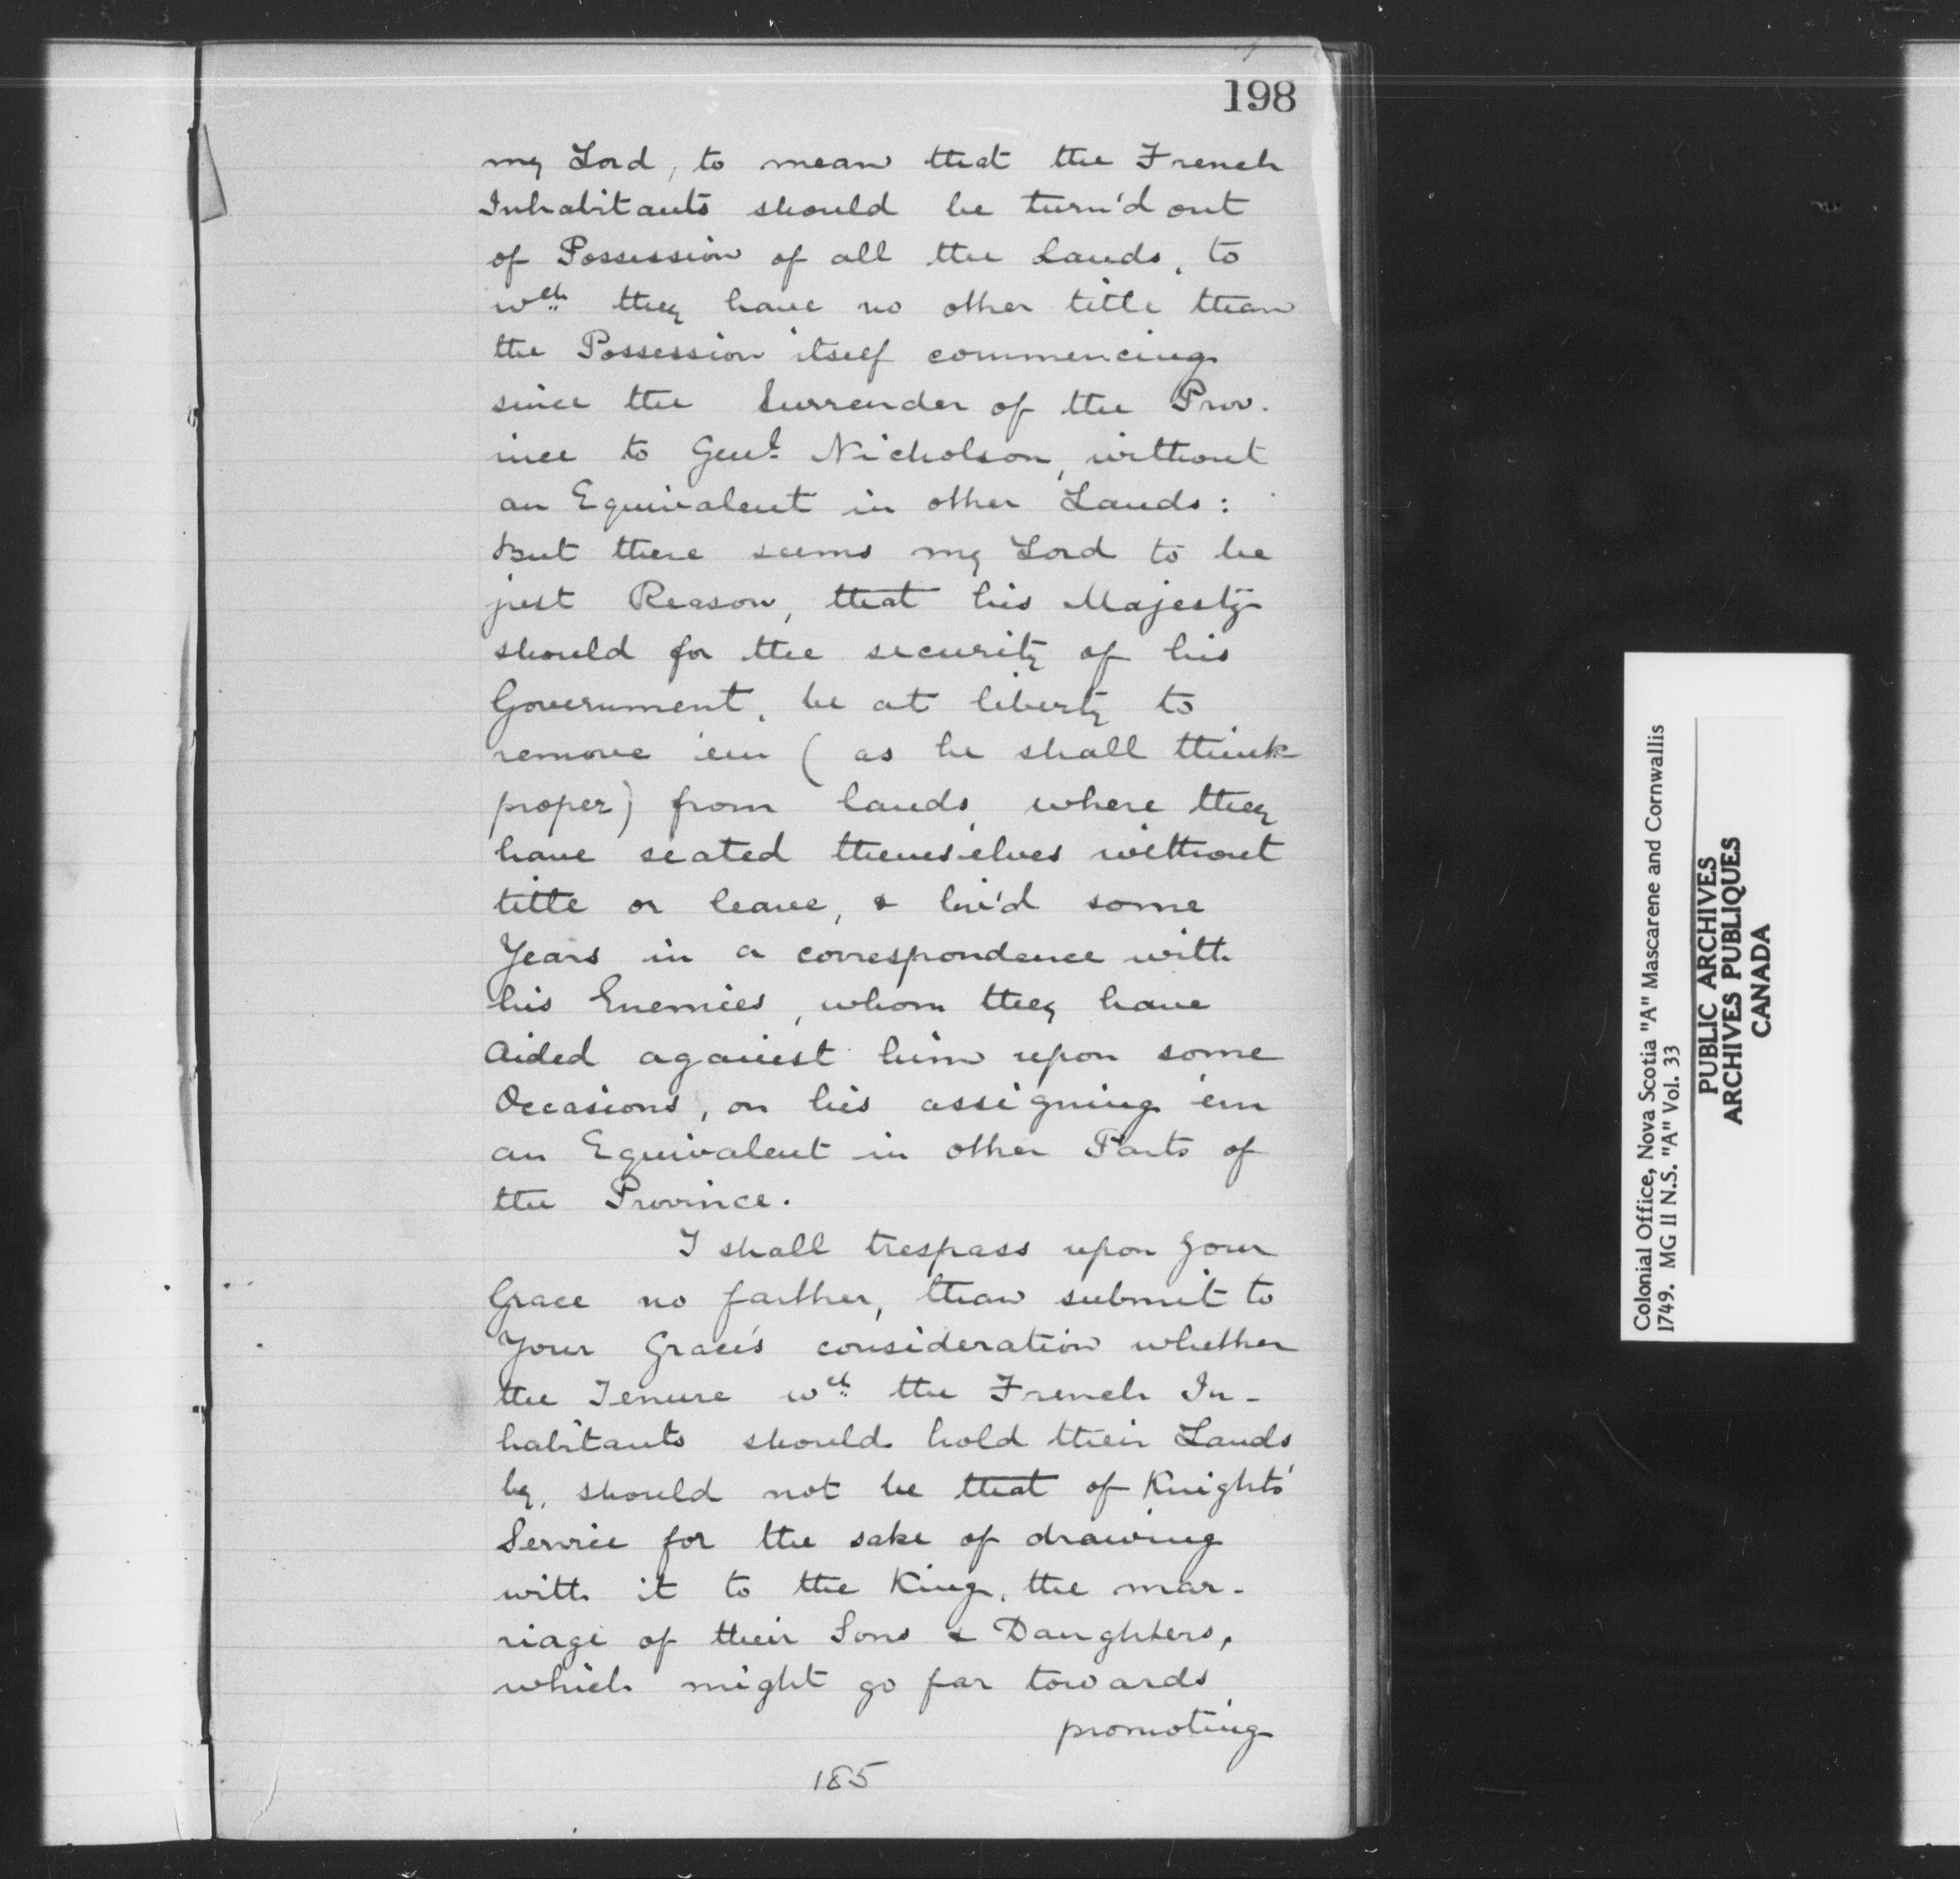 198
my Lord, to mean that the French
Inhabitants should be turn'd out
of Possession of all the Lands, to
wch they have no other title than
the Possession itself commencing
since the Surrender of the Prov-
ince to Genl Nicholson, without
an Equivalent in other Lands:
But there seems my Lord to be
just Reason, that his Majesty
should for the security of his
Government, be at liberty to
remove 'em (as he shall think
proper) from lands where they
have seated themselves without
title or leave, & liv'd some
Years in a correspondence with
his Enemies, whom they have
Aided against him upon some
Occasions, on his assigning 'em
an Equivalent in other Parts of
the Province.
I shall trespass upon your
Grace no farther, than submit to
Your Grace's consideration whether
the Tenure wch the French In-
habitants should hold their Lands
by, should not be that of Knights'
Service for the sake of drawing
with it to the King, the mar-
riage of their Sons & Daughters,
which might go far towards
promoting
185
Colonial Office, Nova Scotia "A" Mascarene and Cornwallis
1749. MG II N.S. "A" Vol. 33
PUBLIC ARCHIVES
ARCHIVES PUBLIQUES
CANADA